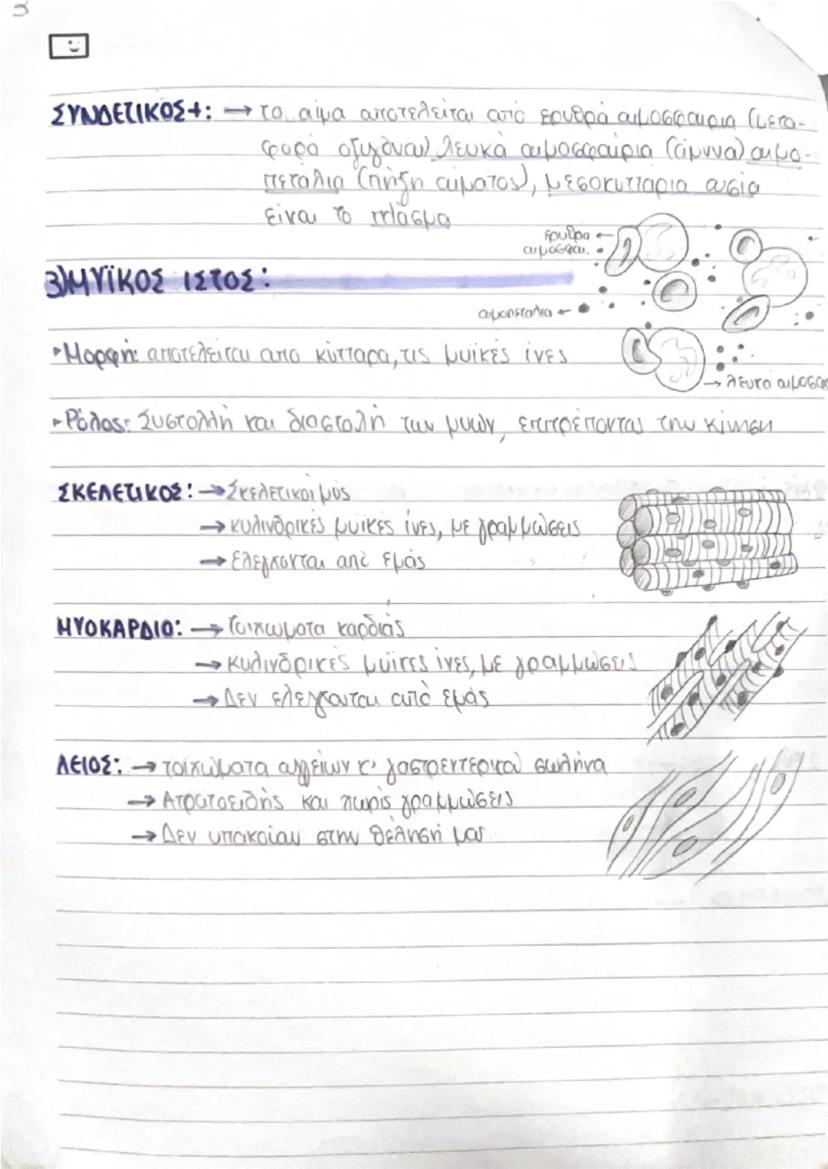 ΣΥΝΔΕΤΙΚΟΣ+: → το αίμα αποτελείται από ερυθρά αιμοσφαίρια (μετα-
φορά οξυγόνου) λευκά αιμοσφαίρια (άμυνα) αιμο-
πετάλια (πήξη αίματος), μεσοκυττάρια ουσία
είναι το πλάσμα
ερυθρα ←
αιμοσφαι.
3) ΜΥΪΚΟΣ ΙΣΤΟΣ:
αιμοπεταλια ←
Μορφή: αποτελείται απο κύτταρα, τις μυϊκές ίνες
→ λευκά αιμοσφα
Ρόλος: Συστολλή και διαστολή των μυών, επιτρέποντας την κίνηση
ΣΚΕΛΕΤΙΚΟΣ: → Σκελετικοι μύς
→ κυλινδρικές μυϊκές ίνες, με γραμμώσεις
→ Ελέγχονται από εμάς
ΜΥΟΚΑΡΔΙΟ: → Τοιχωματα καρδιάς
→ Κυλινδρικές μυϊκες ίνες, με γραμμώσεις
→ Δεν ελεγχονται από εμάς
ΛΕΙΟΣ: → τοιχώματα αγγείων κ' γαστρεντερικού σωλήνα
→ Ατρατοειδής και χωρίς γραμμώσεις
→ Δεν υπακούουν στην θέλησή μας